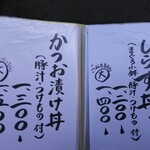 しらす丼
(まぐろ小鉢・豚汁・つけもの付)
一、一〇〇
大
一、四〇〇
かつお漬け丼
(豚汁・つけもの付)
一、三〇〇
大
一、五〇〇